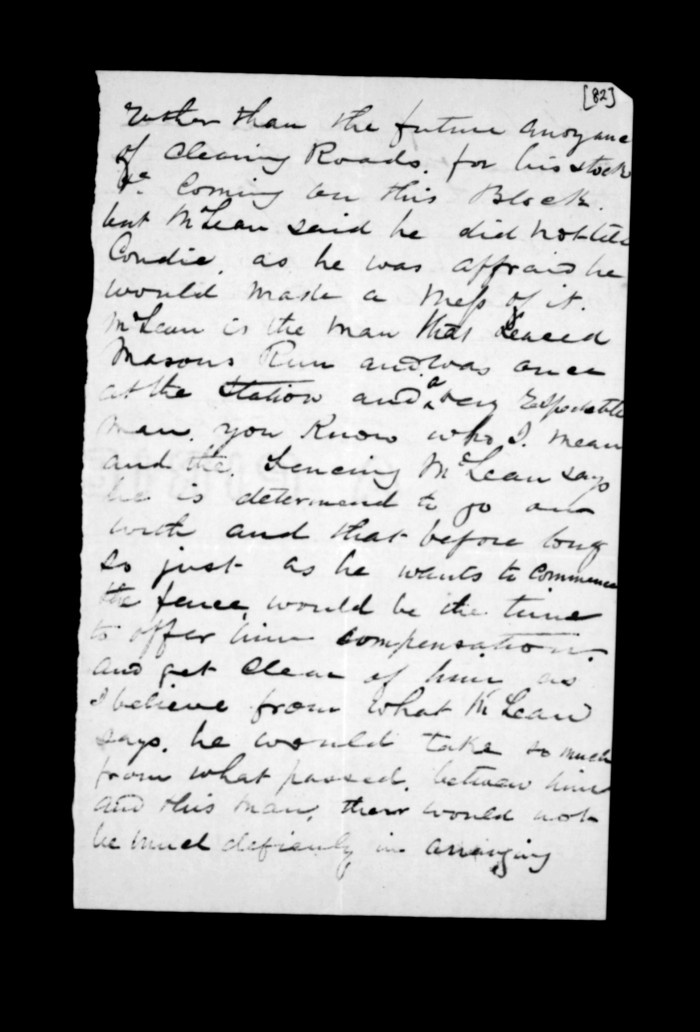 [82]
rather than the future anoyance
of Clearing Roads. for his stock
&c. Coming on this Block.
but McLean said he did not like
Condie, as he was affraid he
would made a Mess of it.
McLean is the man that leased
Masons Run and was once
at the Station and a very respectable
man. you Know who I. mean
and the. fencing McLean says
he is determend to go on
with and that before long
so just as he wants to Commence
the fence, would be the time
to offer him compensation.
and get Clear of him as
I believe from what McLean
says. he would take so much
from what passed. between him
and this man, ther would not
be much deficulty in arranging